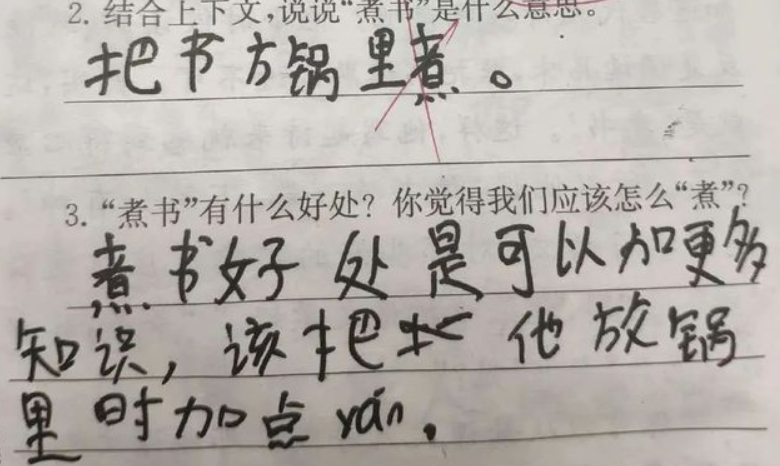 2. 结合上下文,说说“煮书”是什么意思。
把书方锅里煮。
3. “煮书”有什么好处? 你觉得我们应该怎么“煮”?
煮书好处是可以加更多
知识,该把他放锅
里时加点yán。